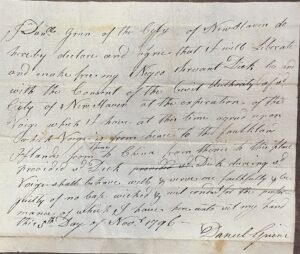 I Danll. Green of the City of New Haven do
hereby declare and agree that I will Liberate
and make free my Negro Servant Dick to
with the Consent of the Civil Authority of sd.
City of New Haven at the expiration of the
Voige which I have at this time agreed upon
which Voige is from hence to the Faulkland
Islands from thence to China from thence to this place
provided sd. Dick provided sd. Dick during sd.
Voige shall behave well & serve me faithfully & be
guilty of no base wicked & for the perfor
mance of which I have hereunto set my hand
this 5th Day of Novr. 1796
Daniel Greene